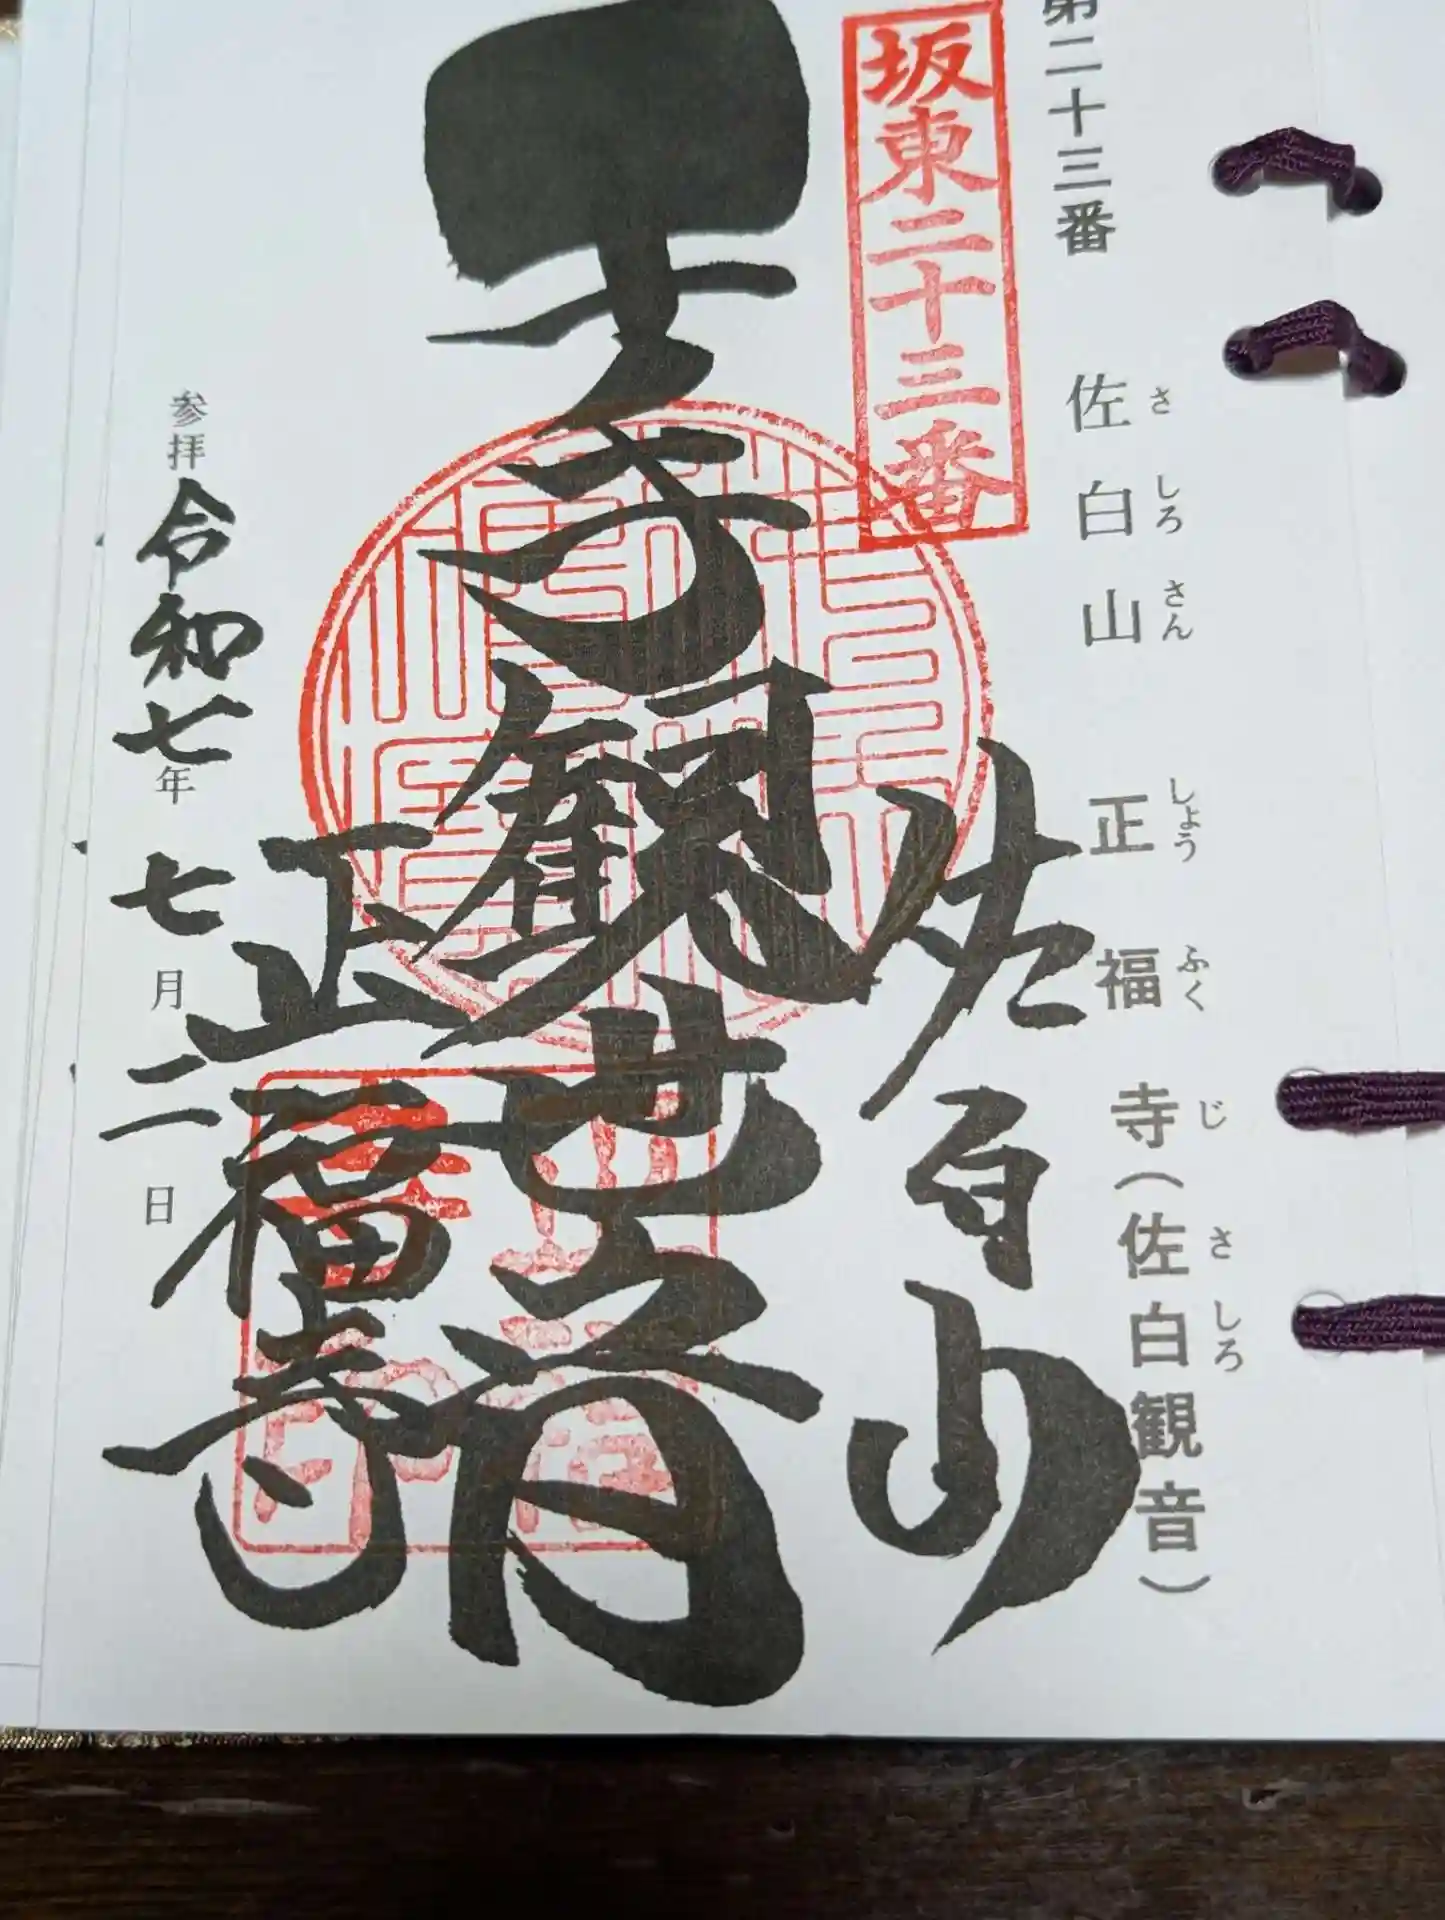 第二十三番 佐白山 正福寺(佐白観音)
さ しろ さん しょう ふく じ さ しろ
坂東二十三番
佐白山
千手観世音
正福寺
参拝 令和七年 七月二日